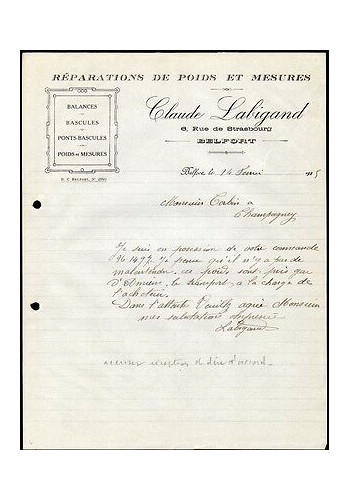 RÉPARATIONS DE POIDS ET MESURES
BALANCES
BASCULES
PONTS-BASCULES
POIDS et MESURES
R. C. BELFORT, Nº
Claude Labigand
6, Rue de Strasbourg
BELFORT
Belfort le 14
Monsieur Corbin à
Champagney
Je suis en possession de votre commande
Nº 1497. Je pense qu'il n'y a pas de
malentendu, ces poids sont pris gare
le transport à la charge de
l'acheteur.
Dans l'attente Veuillez agréer Monsieur
mes salutations
Labigand
réception et d'accord.